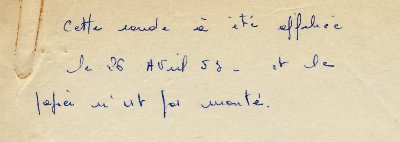 Cette ronde à été affichée
le 26 Avril 53 - et le
papier n'est pas monté.